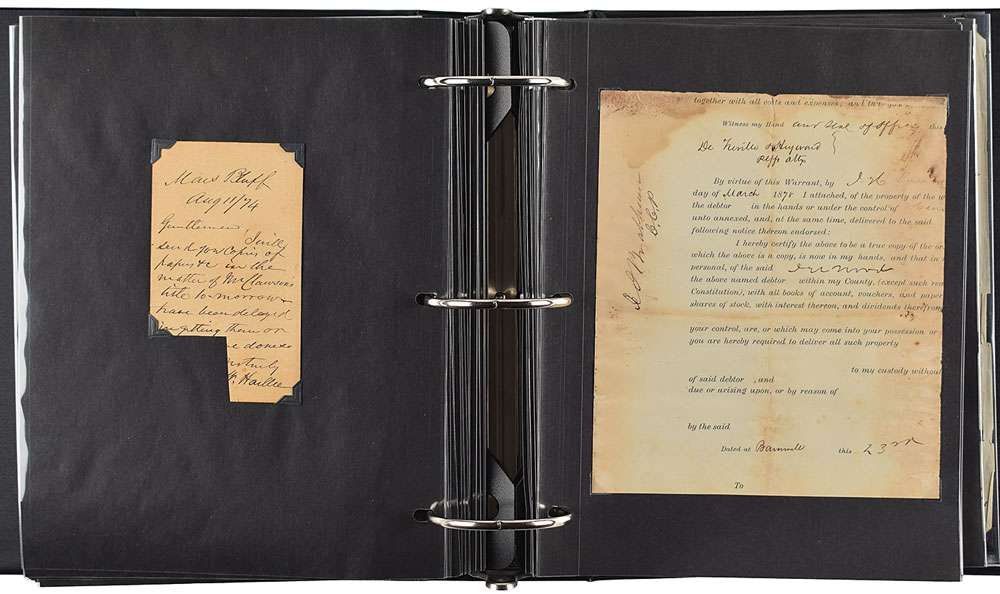 Mars Bluff
Aug 11/74
Gentlemen,
I will
send you Copies of
papers &c in the
matter of Mr Clawsons
title tomorrow
have been delayed
in getting them or
done
Hard
together with all costs and expenses, and the
Witness my Hand and Seal of Office this
De Treville & Heyward
Plffs attys
C.C.P.
By virtue of this Warrant, by
day of March 1878 I attached, of the property of the w
the debtor in the hands or under the control of
unto annexed, and, at the same time, delivered to the said
following notice thereon endorsed:
I hereby certify the above to be a true copy of the or
which the above is a copy, is now in my hands, and that in
personal, of the said
the above named debtor within my County, (except such rea
Constitution), with all books of account, vouchers, and paper
shares of stock, with interest thereon, and dividends therefrom
your control, are, or which may come into your possession or
you are hereby required to deliver all such property
to my custody without
of said debtor , and
due or arising upon, or by reason of
by the said
Dated at Barnwell this 23rd
To